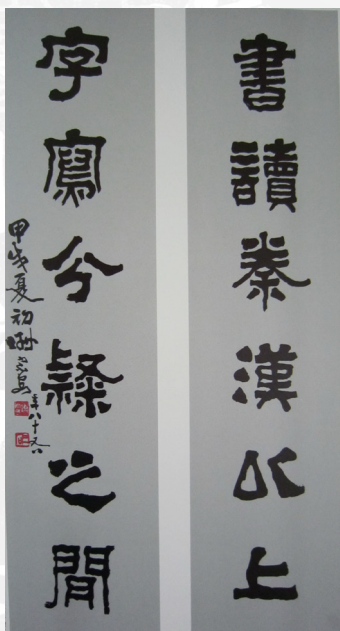 書讀秦漢以上
字寫分隸之閒
甲戌夏初
年八十又八